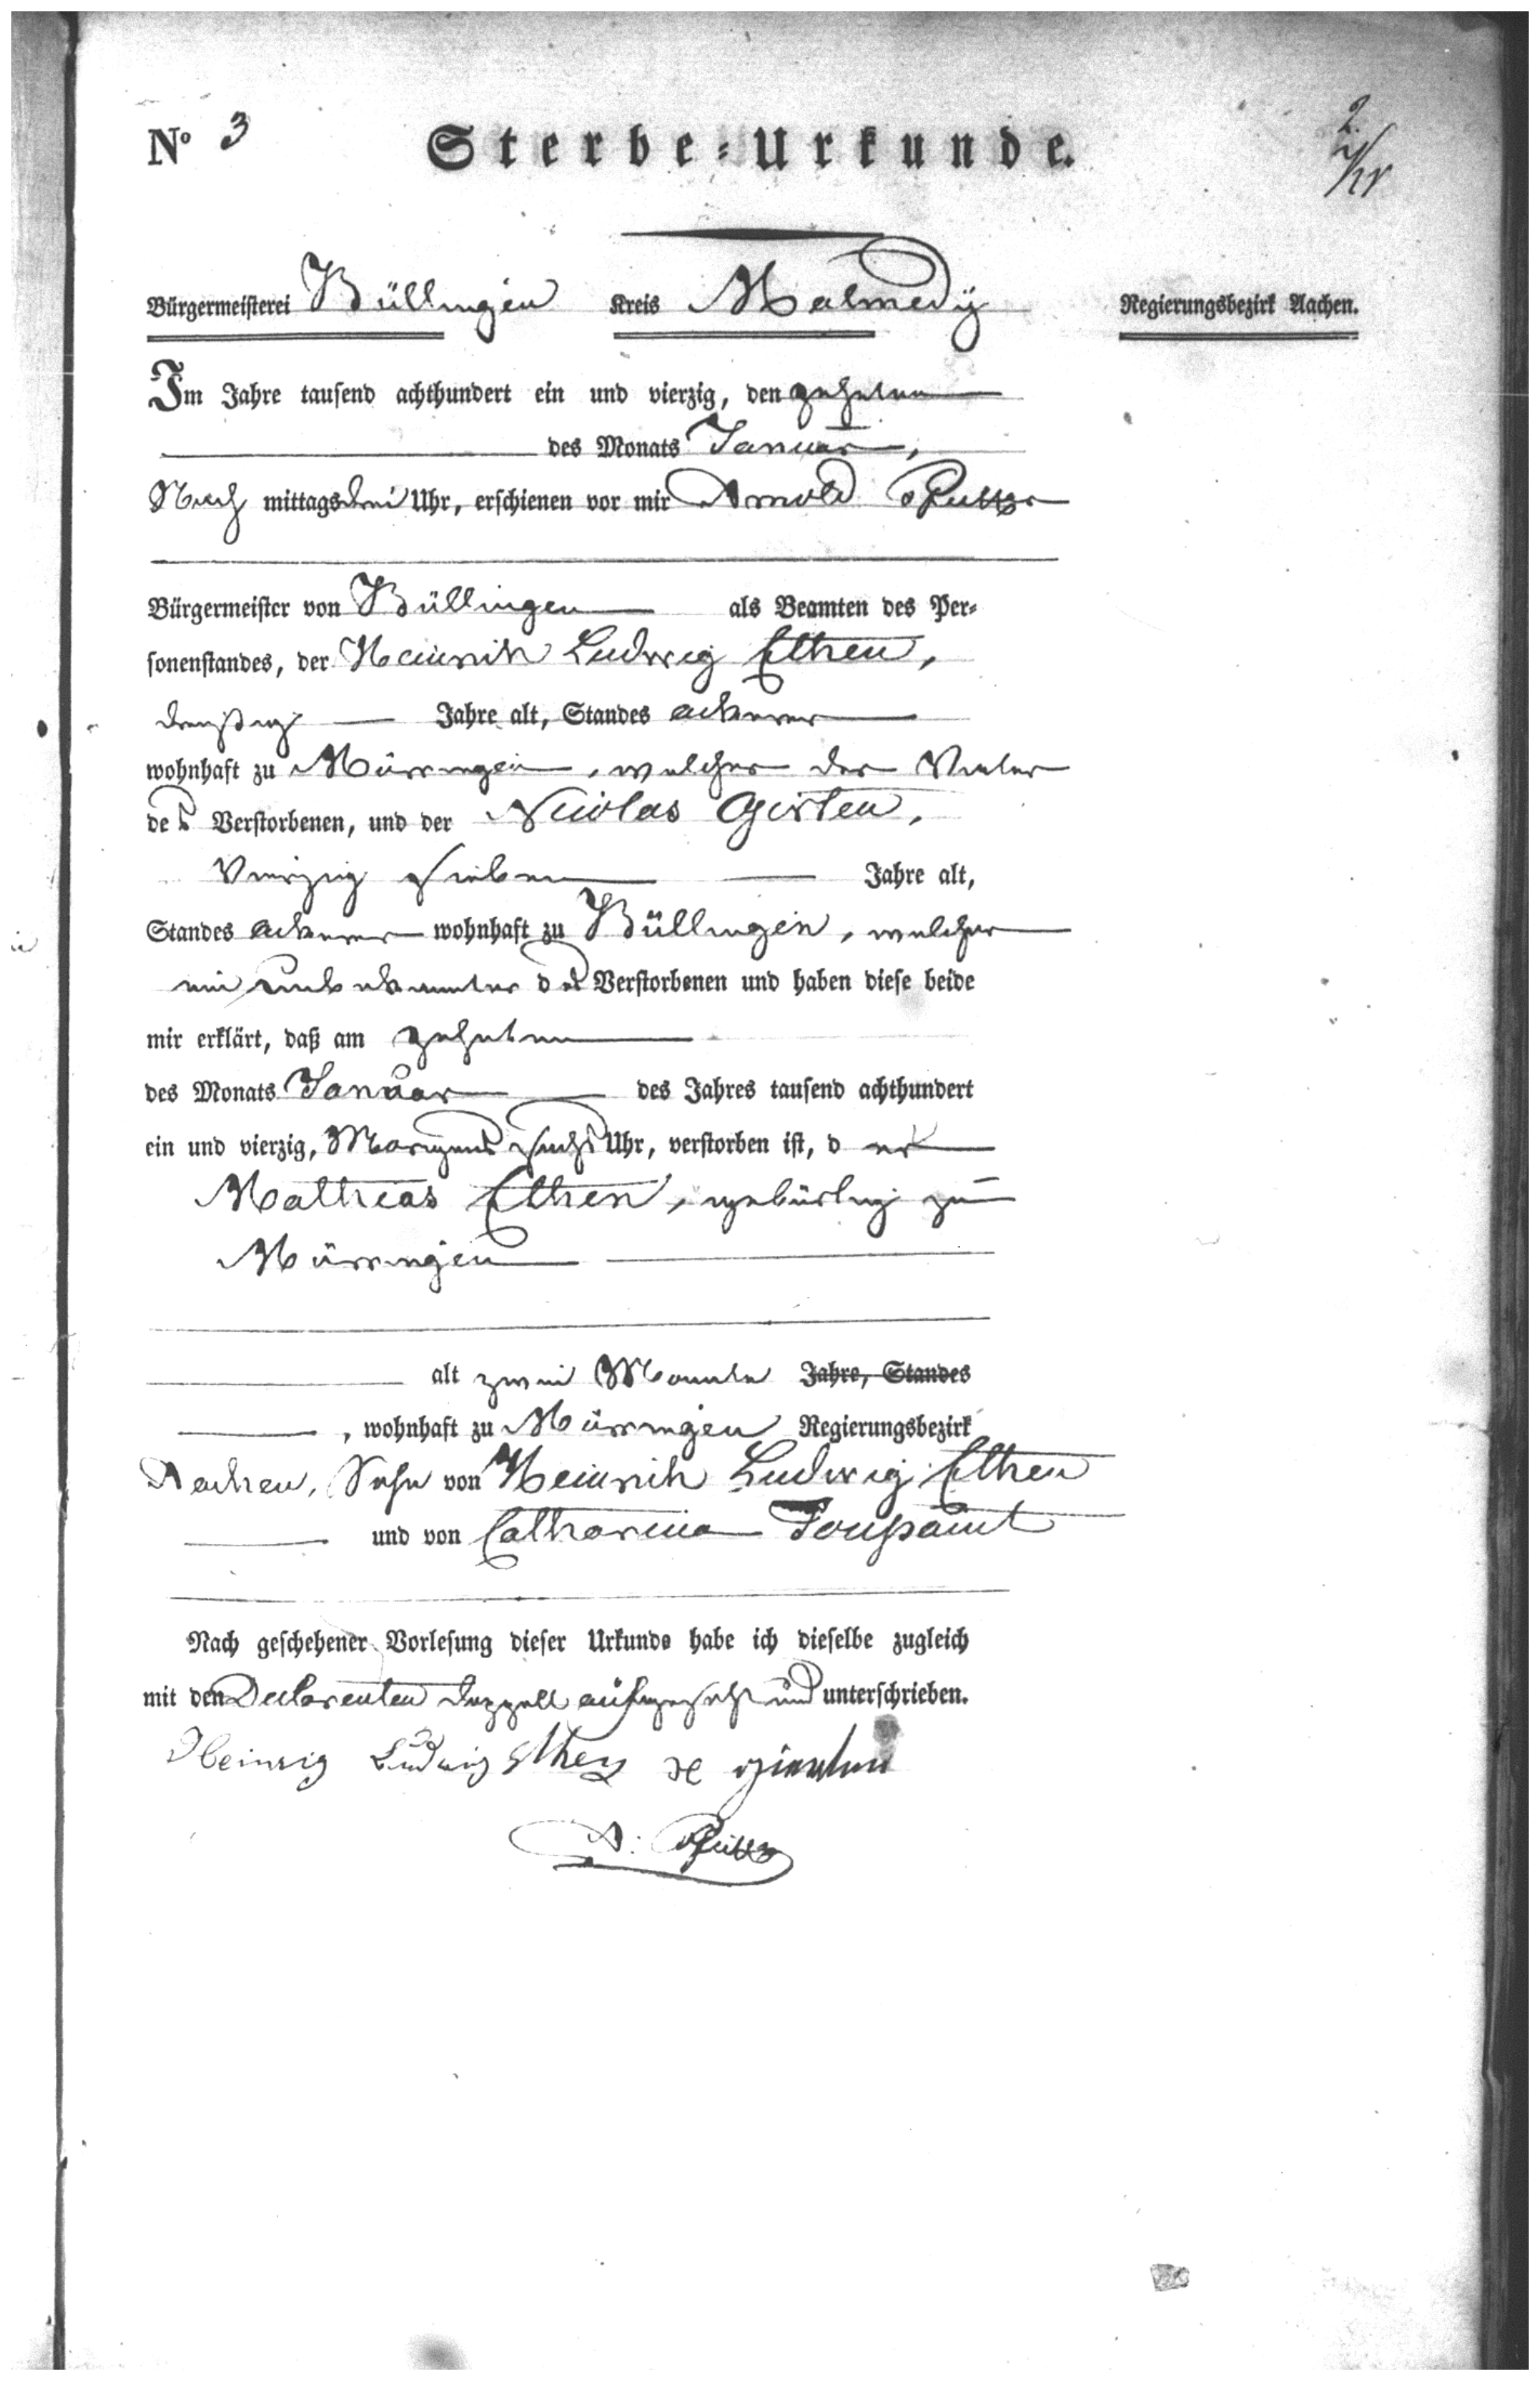 No 3 Sterbe-Urkunde. 2
Bürgermeisterei Büllingen Kreis Malmedÿ Regierungsbezirk Aachen.
Im Jahre tausend achthundert ein und vierzig, den zehnten
des Monats Januar,
Nach mittags drei Uhr, erschienen vor mir Arnold
Bürgermeister von Büllingen als Beamten des Per-
sonenstandes, der Heinrich Ludwig Ethen,
dreyßig Jahre alt, Standes ackerer
wohnhaft zu Mürringen, welcher der Vater
des Verstorbenen, und der Nicolas Girten,
Vierzig sieben Jahre alt,
Standes ackerer wohnhaft zu Büllingen, welcher
ein des Verstorbenen und haben diese beide
mir erklärt, daß am zehnten
des Monats Januar des Jahres tausend achthundert
ein und vierzig, Morgens sechs Uhr, verstorben ist, d er
Mathias Ethen, gebürtig zu
Mürringen
alt zwei Monate Jahre, Standes
, wohnhaft zu Mürringen Regierungsbezirk
Aachen, Sohn von Heinrich Ludwig Ethen
und von Catharina Toußaint
Nach geschehener Vorlesung dieser Urkunde habe ich dieselbe zugleich
mit den Declarenten doppelt aufgesetzt und unterschrieben.
Heinrig Ludwig Ethen
A: